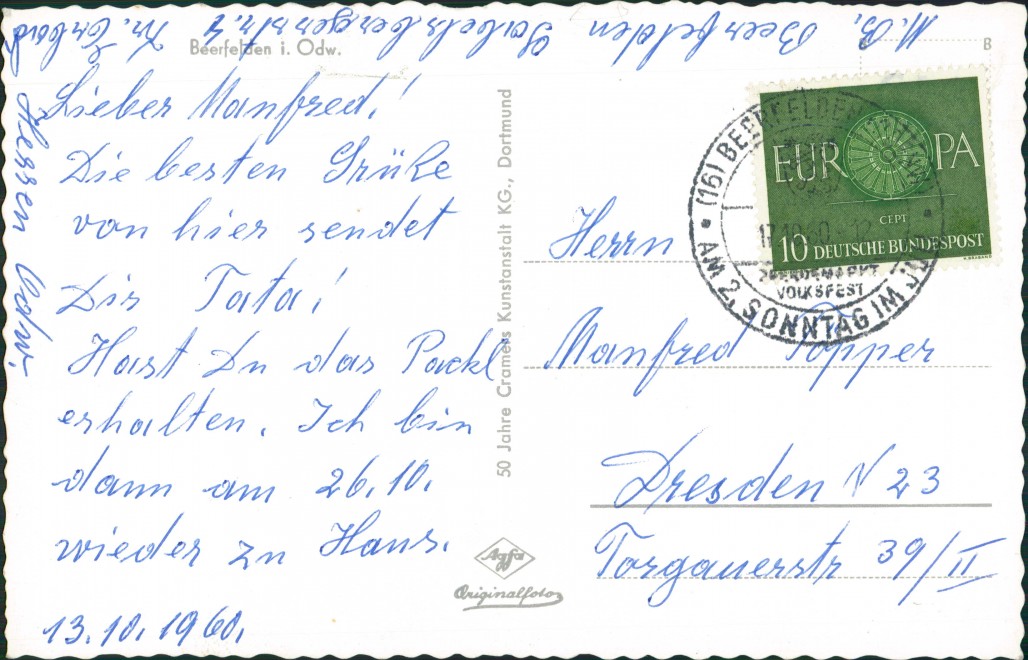 Beerfelden i. Odw.
Lieber Manfred!
Die besten Grüße
von hier sendet
Dir Tata!
Hast Du das Packl
erhalten. Ich bin
dann am 26.10.
wieder zu Haus.
13.10.1960.
Hessen Odw.
Beerfelden
50 Jahre Cramers Kunstanstalt KG., Dortmund
Agfa
Originalfoto
B
EUROPA
CEPT
10 DEUTSCHE BUNDESPOST
(16) BEERFELDEN
17.10.60
VOLKSFEST
AM 2. SONNTAG IM
Herrn
Manfred Topper
Dresden N 23
Torgauerstr 39/II